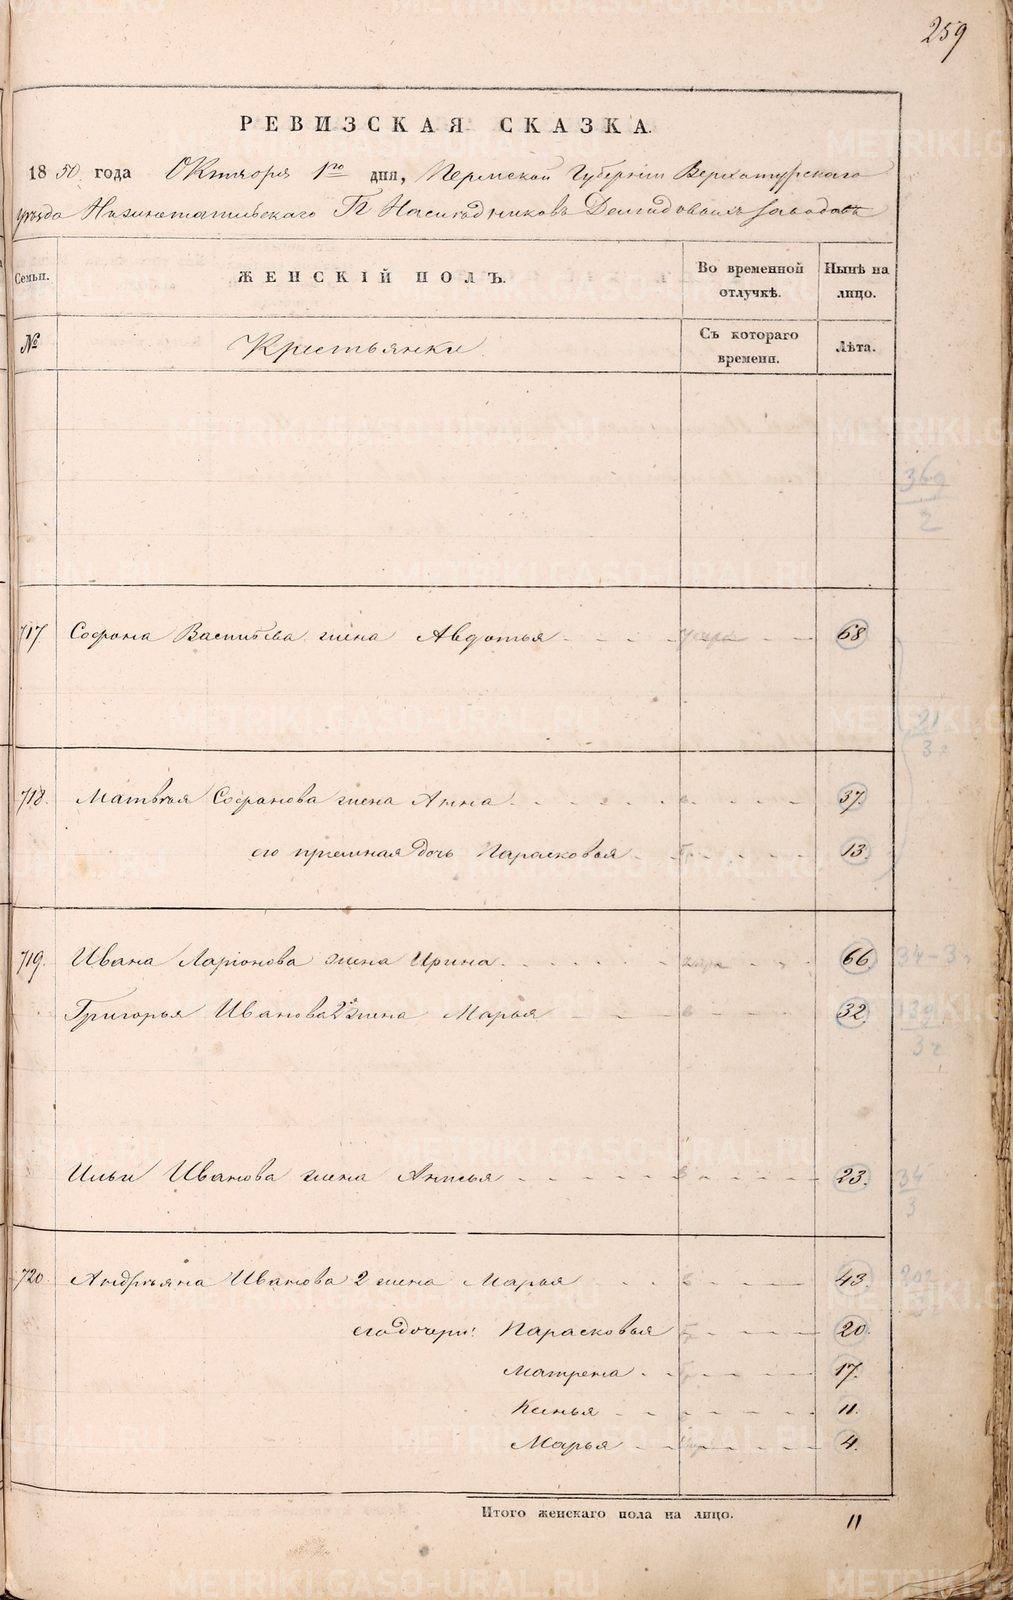 259
РЕВИЗСКАЯ СКАЗКА.
1850 года Октября 1го дня, Пермской Губерніи Верхотурскаго
уѣзда Нижнетагильскаго Гг Наслѣдниковъ Демидовыхъ завода
Семьи. ЖЕНСКІЙ ПОЛЪ. Во временной отлучкѣ. Нынѣ на лицо.
№ Крестьянки Съ котораго времени. Лѣта.
369
2
717 Софрона Васильева жена Авдотья 68
21
3
718. Матвѣя Софронова жена Анна 37.
его приемная дочь Парасковья 13.
719. Ивана Ларіонова жена Ирина 66
34-3
Григорья Иванова 2я жена Марья 32.
Ильи Иванова жена Анисья 23.
34
3
720. Андреяна Иванова 2 жена Марья 43.
его дочери: Парасковья 20.
Матрена 17.
Ксенья 11.
Марья 4.
Итого женскаго пола на лицо. 11
METRIKI.GASO-URAL.RU